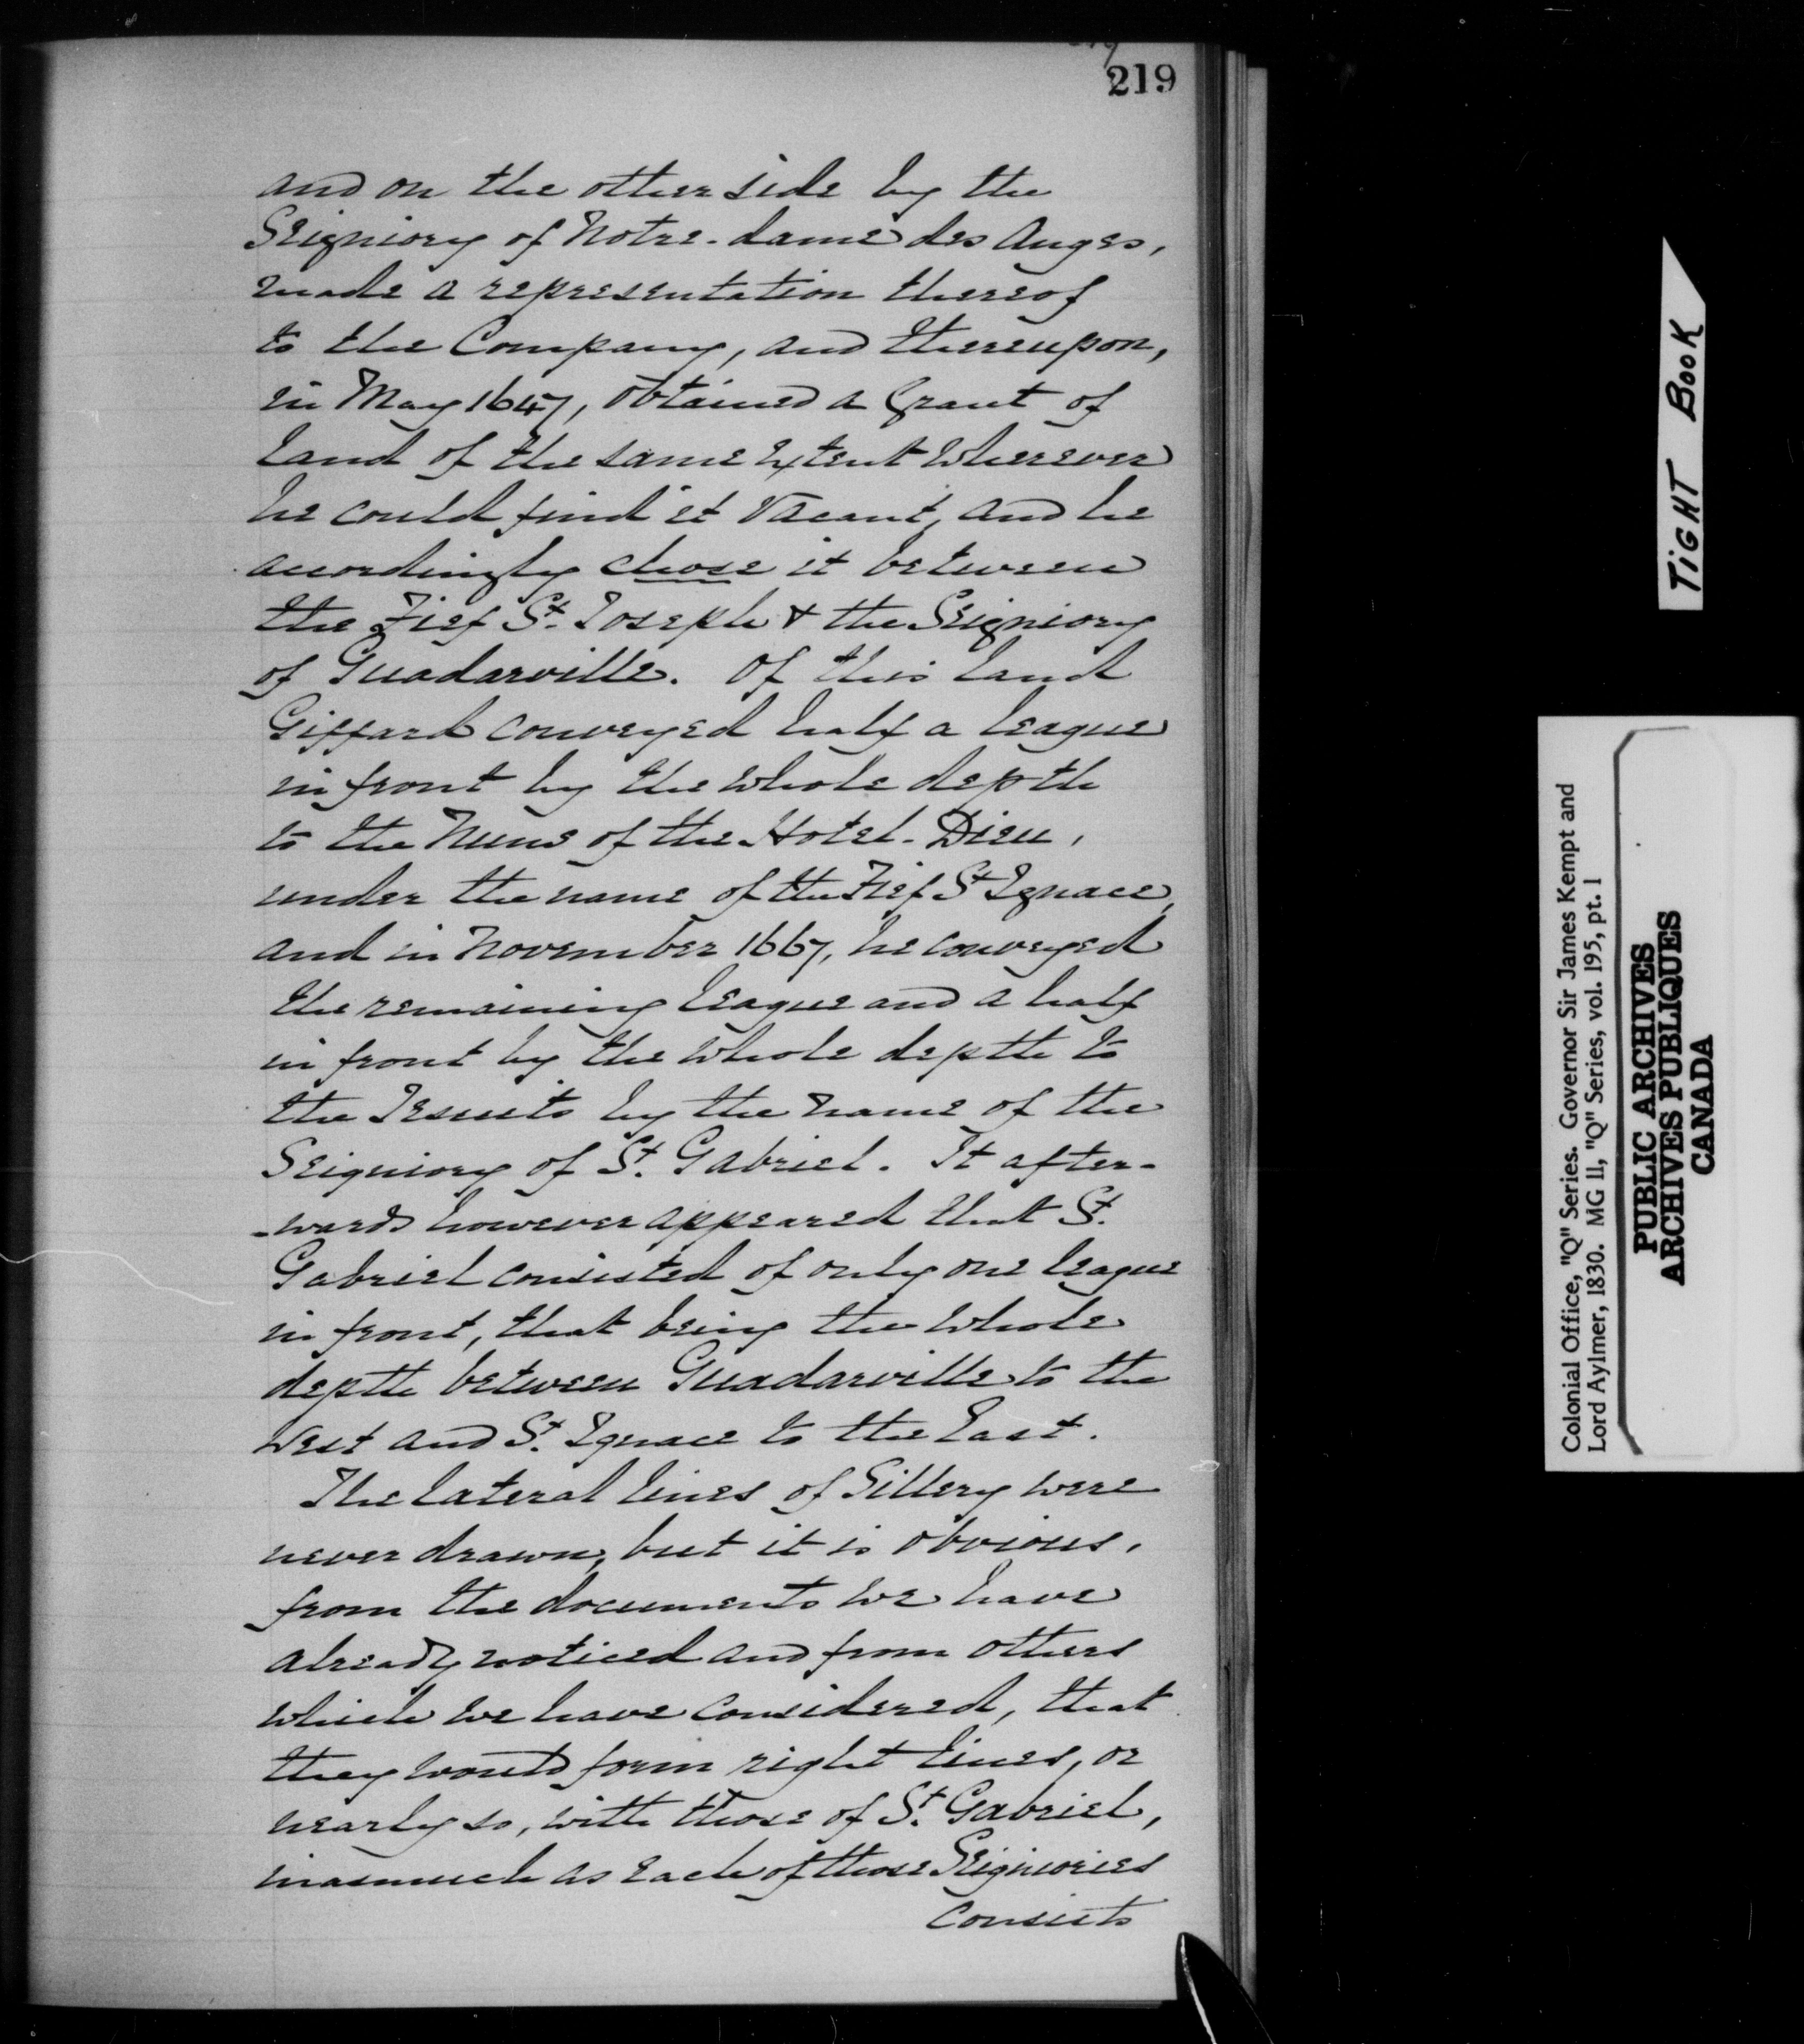 219
and on the other side by the
Seigniory of Notre-dame des Anges,
made a representation thereof
to the Company, and thereupon,
in May 1647, obtained a Grant of
land of the same extent wherever
he could find it vacant, and he
accordingly chose it between
the Fief St. Joseph & the Seigniory
of Guadarville. Of this land
Giffard conveyed half a league
in front by the whole depth
to the Nuns of the Hotel-Dieu,
under the name of the Fief St Ignace,
and in November 1667, he conveyed
the remaining league and a half
in front by the whole depth to
the Jesuits by the name of the
Seigniory of St. Gabriel. It after-
-wards however appeared that St.
Gabriel consisted of only one league
in front, that being the whole
depth between Guadarville to the
West and St. Ignace to the East.
The lateral lines of Sillery were
never drawn, but it is obvious,
from the documents we have
already noticed and from others
which we have considered, that
they would form right lines, or
nearly so, with those of St. Gabriel,
inasmuch as each of those Seigniories
consists
TIGHT BOOK
Colonial Office, "Q" Series. Governor Sir James Kempt and
Lord Aylmer, 1830. MG 11, "Q" Series, vol. 195, pt. 1
PUBLIC ARCHIVES
ARCHIVES PUBLIQUES
CANADA